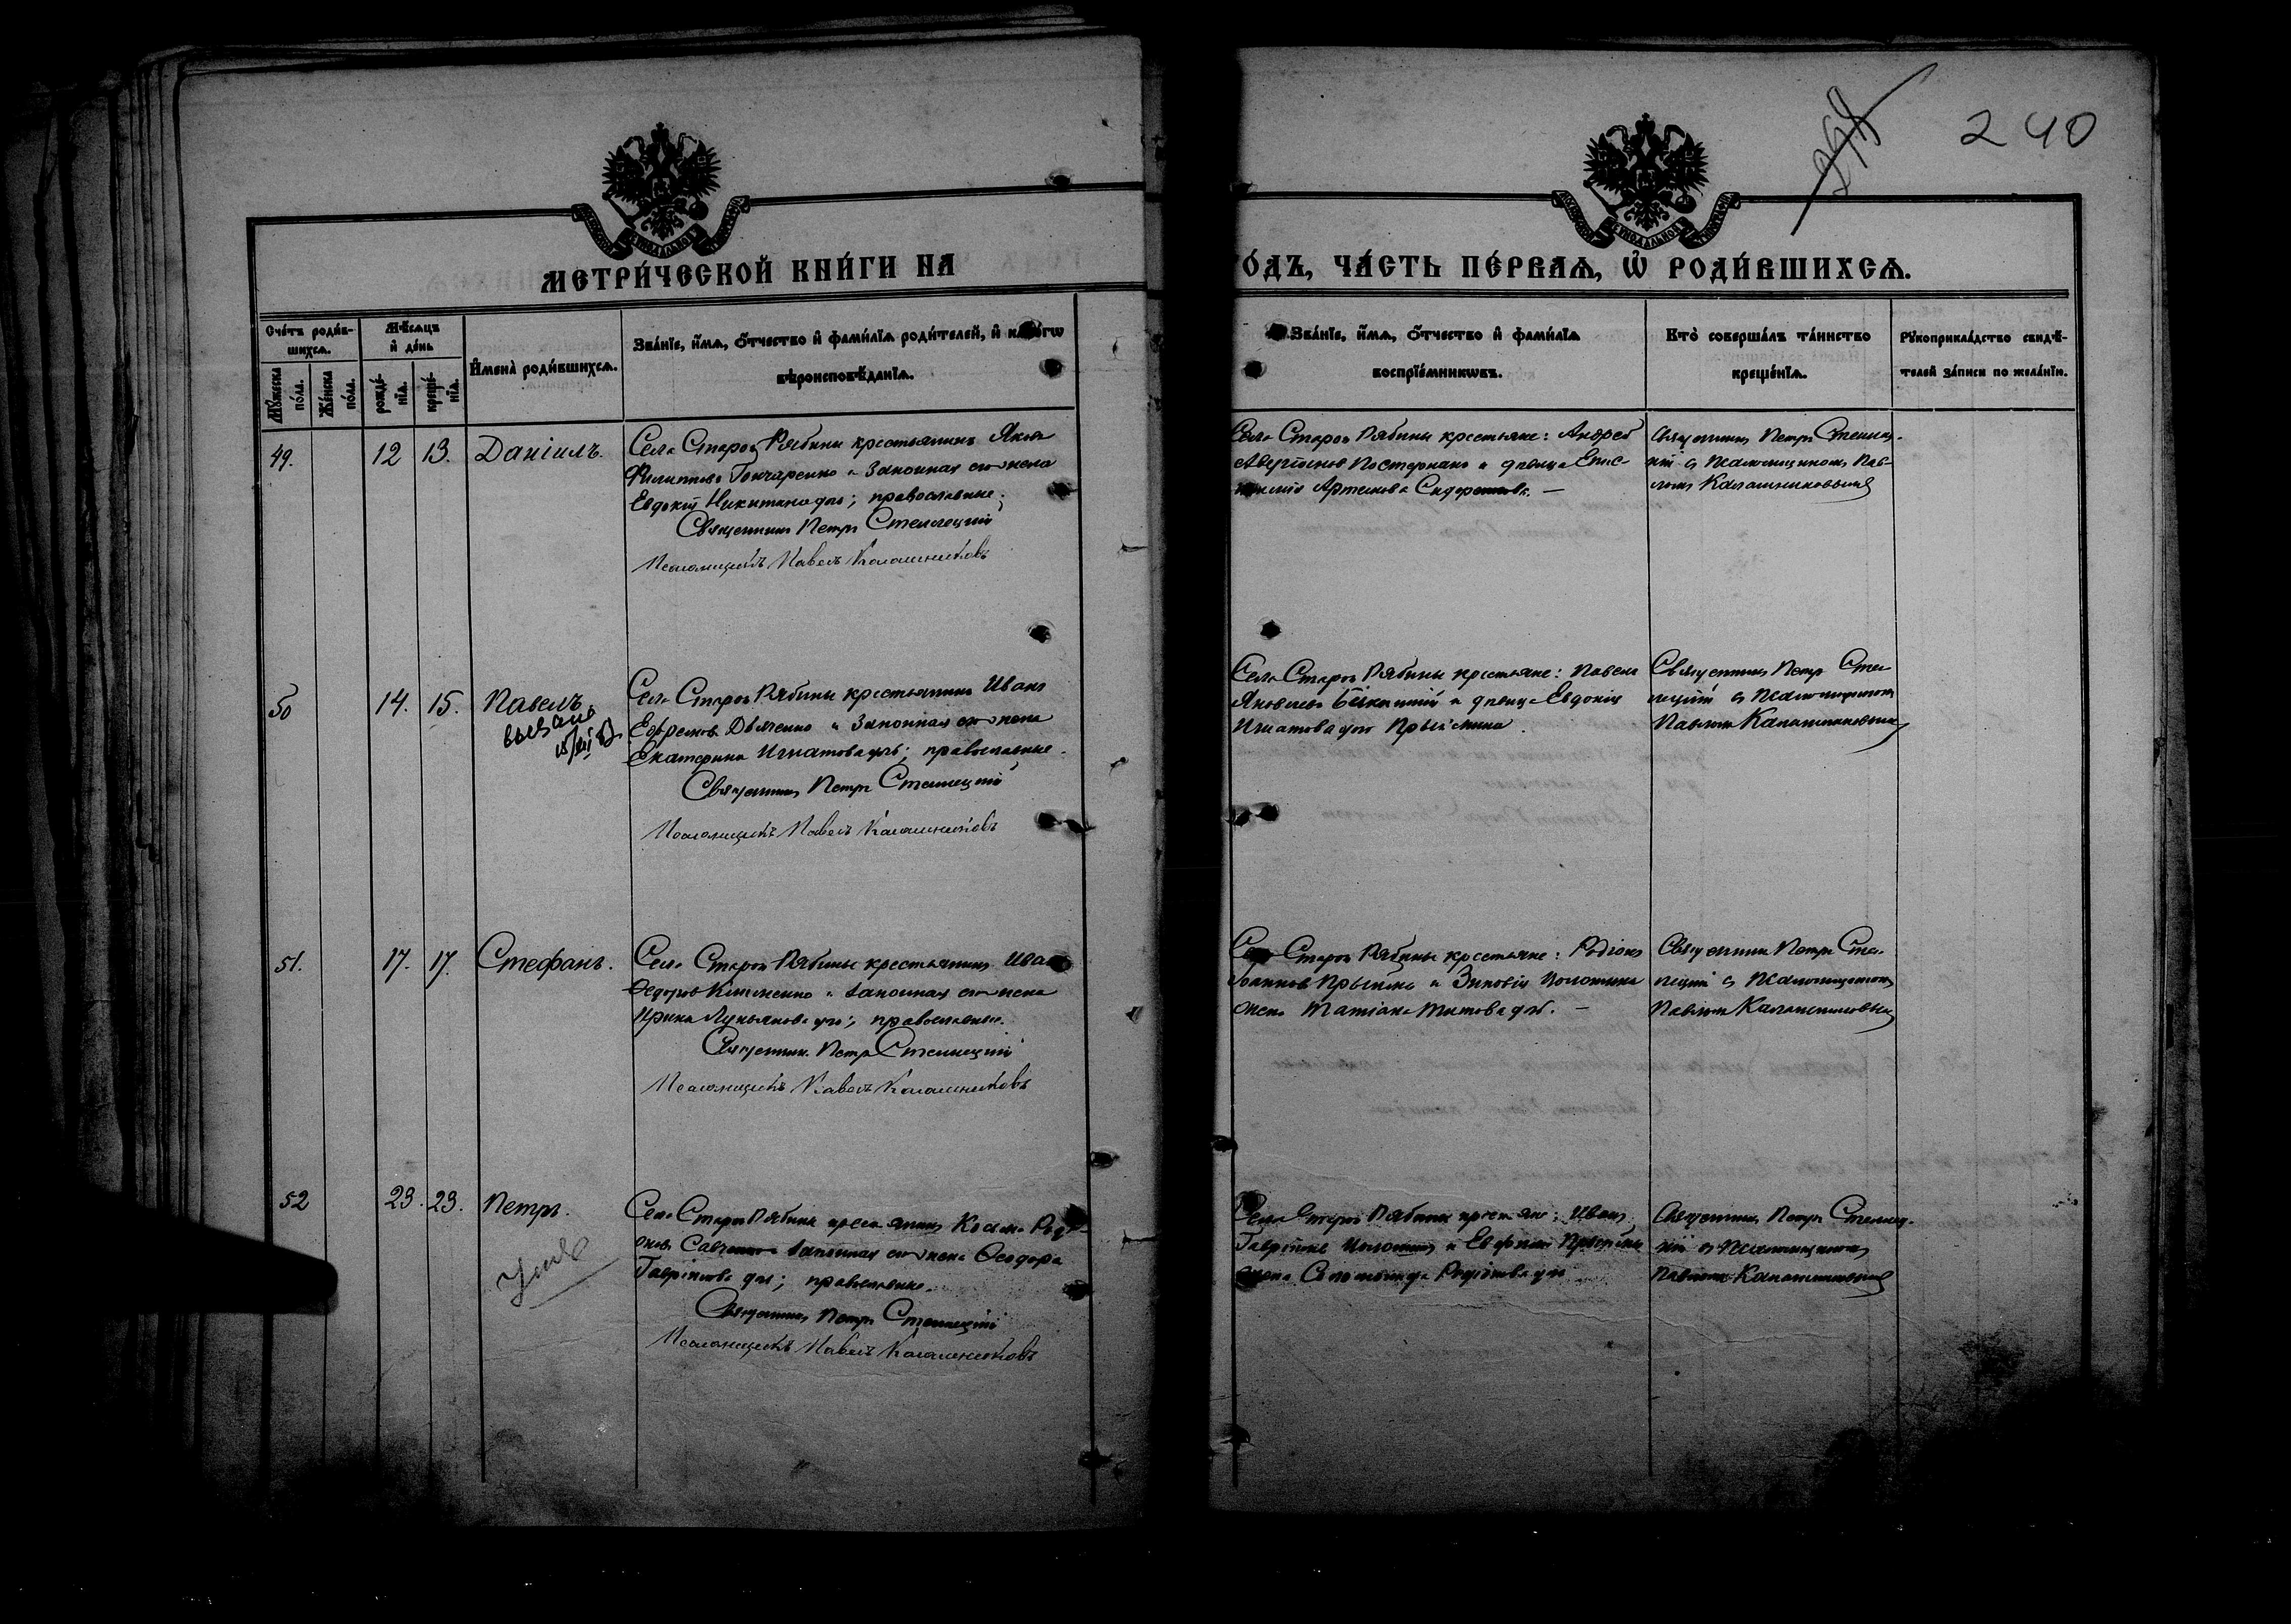 240
МЕТРИ́ЧЕСКОЙ КНИ́ГИ НА
О́ДЪ, ЧА́СТЬ ПЕ́РВАѦ, Ѡ РОДИ́ВШИХСѦ.
Сче́тъ роди́в-
шихсѧ.
Мꙋжеска по́ла.
Же́нска по́ла.
Мѣ́сѧцъ и де́нь
рожде́-
нїѧ.
креще́-
нїѧ.
Имена̀ роди́вшихсѧ.
Зва́нїе, и́мѧ, о́тчество и фами́лїѧ роди́телей, и
вѣроисповѣ́данїѧ.
Зва́нїе, и́мѧ, о́тчество и фами́лїѧ
воспрїе́мникѡвъ.
Кто̀ соверша́лъ та́инство
креще́нїѧ.
Рꙋкоприкла́дство свидѣ́-
телей за́писи по жела́нїю.
49.
12
13.
Данiилъ.
Села Старой Рябины крестьянинъ Яковъ
Филипповъ Гончаренко и законная его жена
Евдокія Никитина дочь; православные.
Священникъ Петръ Стеллецкій
Псаломщикъ Павелъ Калашниковъ
Села Старой Рябины крестьяне: Андрей
и девица
Артемова
Священникъ Петръ Стеллец-
кій съ псаломщикомъ Пав-
ломъ Калашниковымъ
50
14.
15.
Павелъ
Села Старой Рябины крестьянинъ Иванъ
Ефремовъ Дьяченко и законная его жена
Екатерина Игнатова дочь; православные.
Священникъ Петръ Стеллецкій
Псаломщикъ Павелъ Калашниковъ
Села Старой Рябины крестьяне: Павелъ
Яковлевъ и девица Евдокія
Игнатова дочь
Священникъ Петръ Стел-
лецкій съ псаломщикомъ
Павломъ Калашниковымъ
51.
17.
17.
Стефанъ.
Села Старой Рябины крестьянинъ Иванъ
Федоровъ и законная его жена
Ирина Лукьянова дочь; православные.
Священникъ Петръ Стеллецкій
Псаломщикъ Павелъ Калашниковъ
Села Старой Рябины крестьяне: Родіонъ
и Зиновія
жена Татіана Титова дочь.
Священникъ Петръ Стел-
лецкій съ псаломщикомъ
Павломъ Калашниковымъ
52
23.
23.
Петръ.
Села Старой Рябины крестьянинъ Косма Роді-
оновъ Савченко и законная его жена Феодора
Гавріилова дочь; православные.
Священникъ Петръ Стеллецкій
Псаломщикъ Павелъ Калашниковъ
Села Старой Рябины крестьяне: Иванъ
и
жена Родіонова дочь
Священникъ Петръ Стеллец-
кій съ псаломщикомъ
Павломъ Калашниковымъ